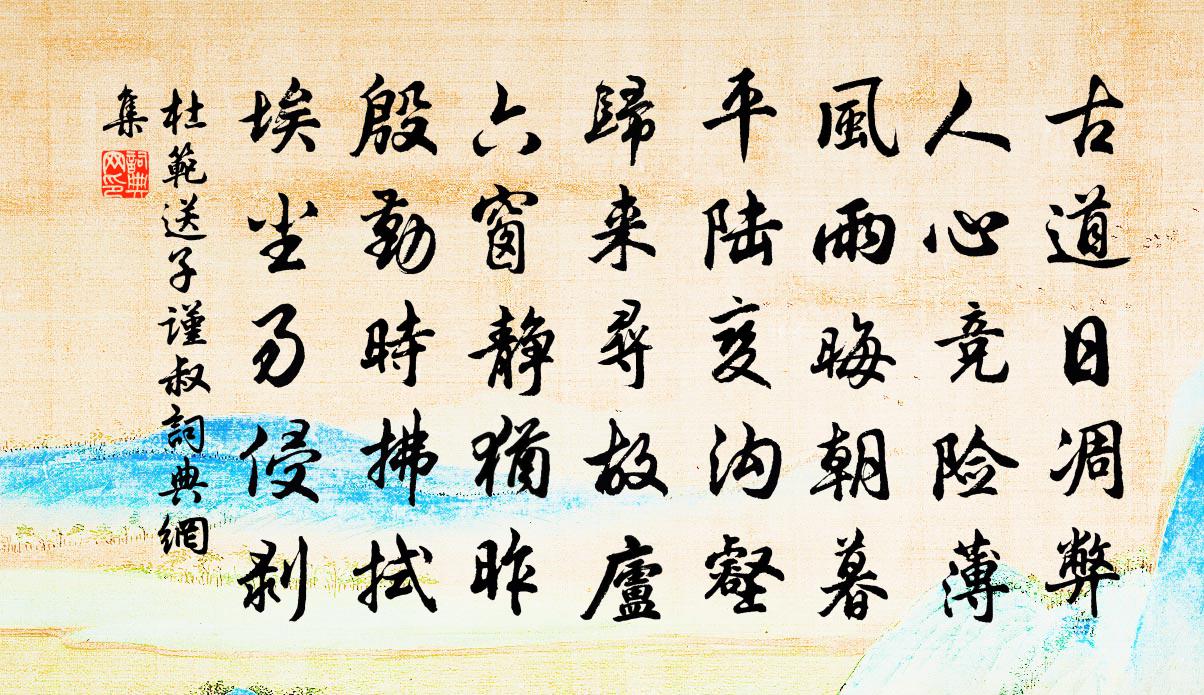 古道日凋弊
人心竞险薄
風雨晦朝暮
平陆变沟壑
歸来尋故廬
六窗静猶昨
殷勤時拂拭
埃尘易侵剥
杜範送子謹叔詞典網
集
詞典网印